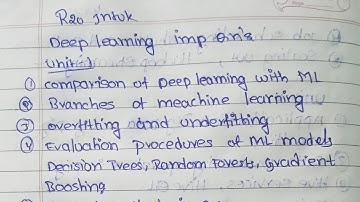 R20 Jntuk
Deep learning imp Qn's
Unit-1
① comparison of Deep learning with ML
② Branches of meachine learning
③ overfitting and underfitting
④ Evaluation procedures of ML models
Decision Trees, Random Forests, Gradient
Boosting